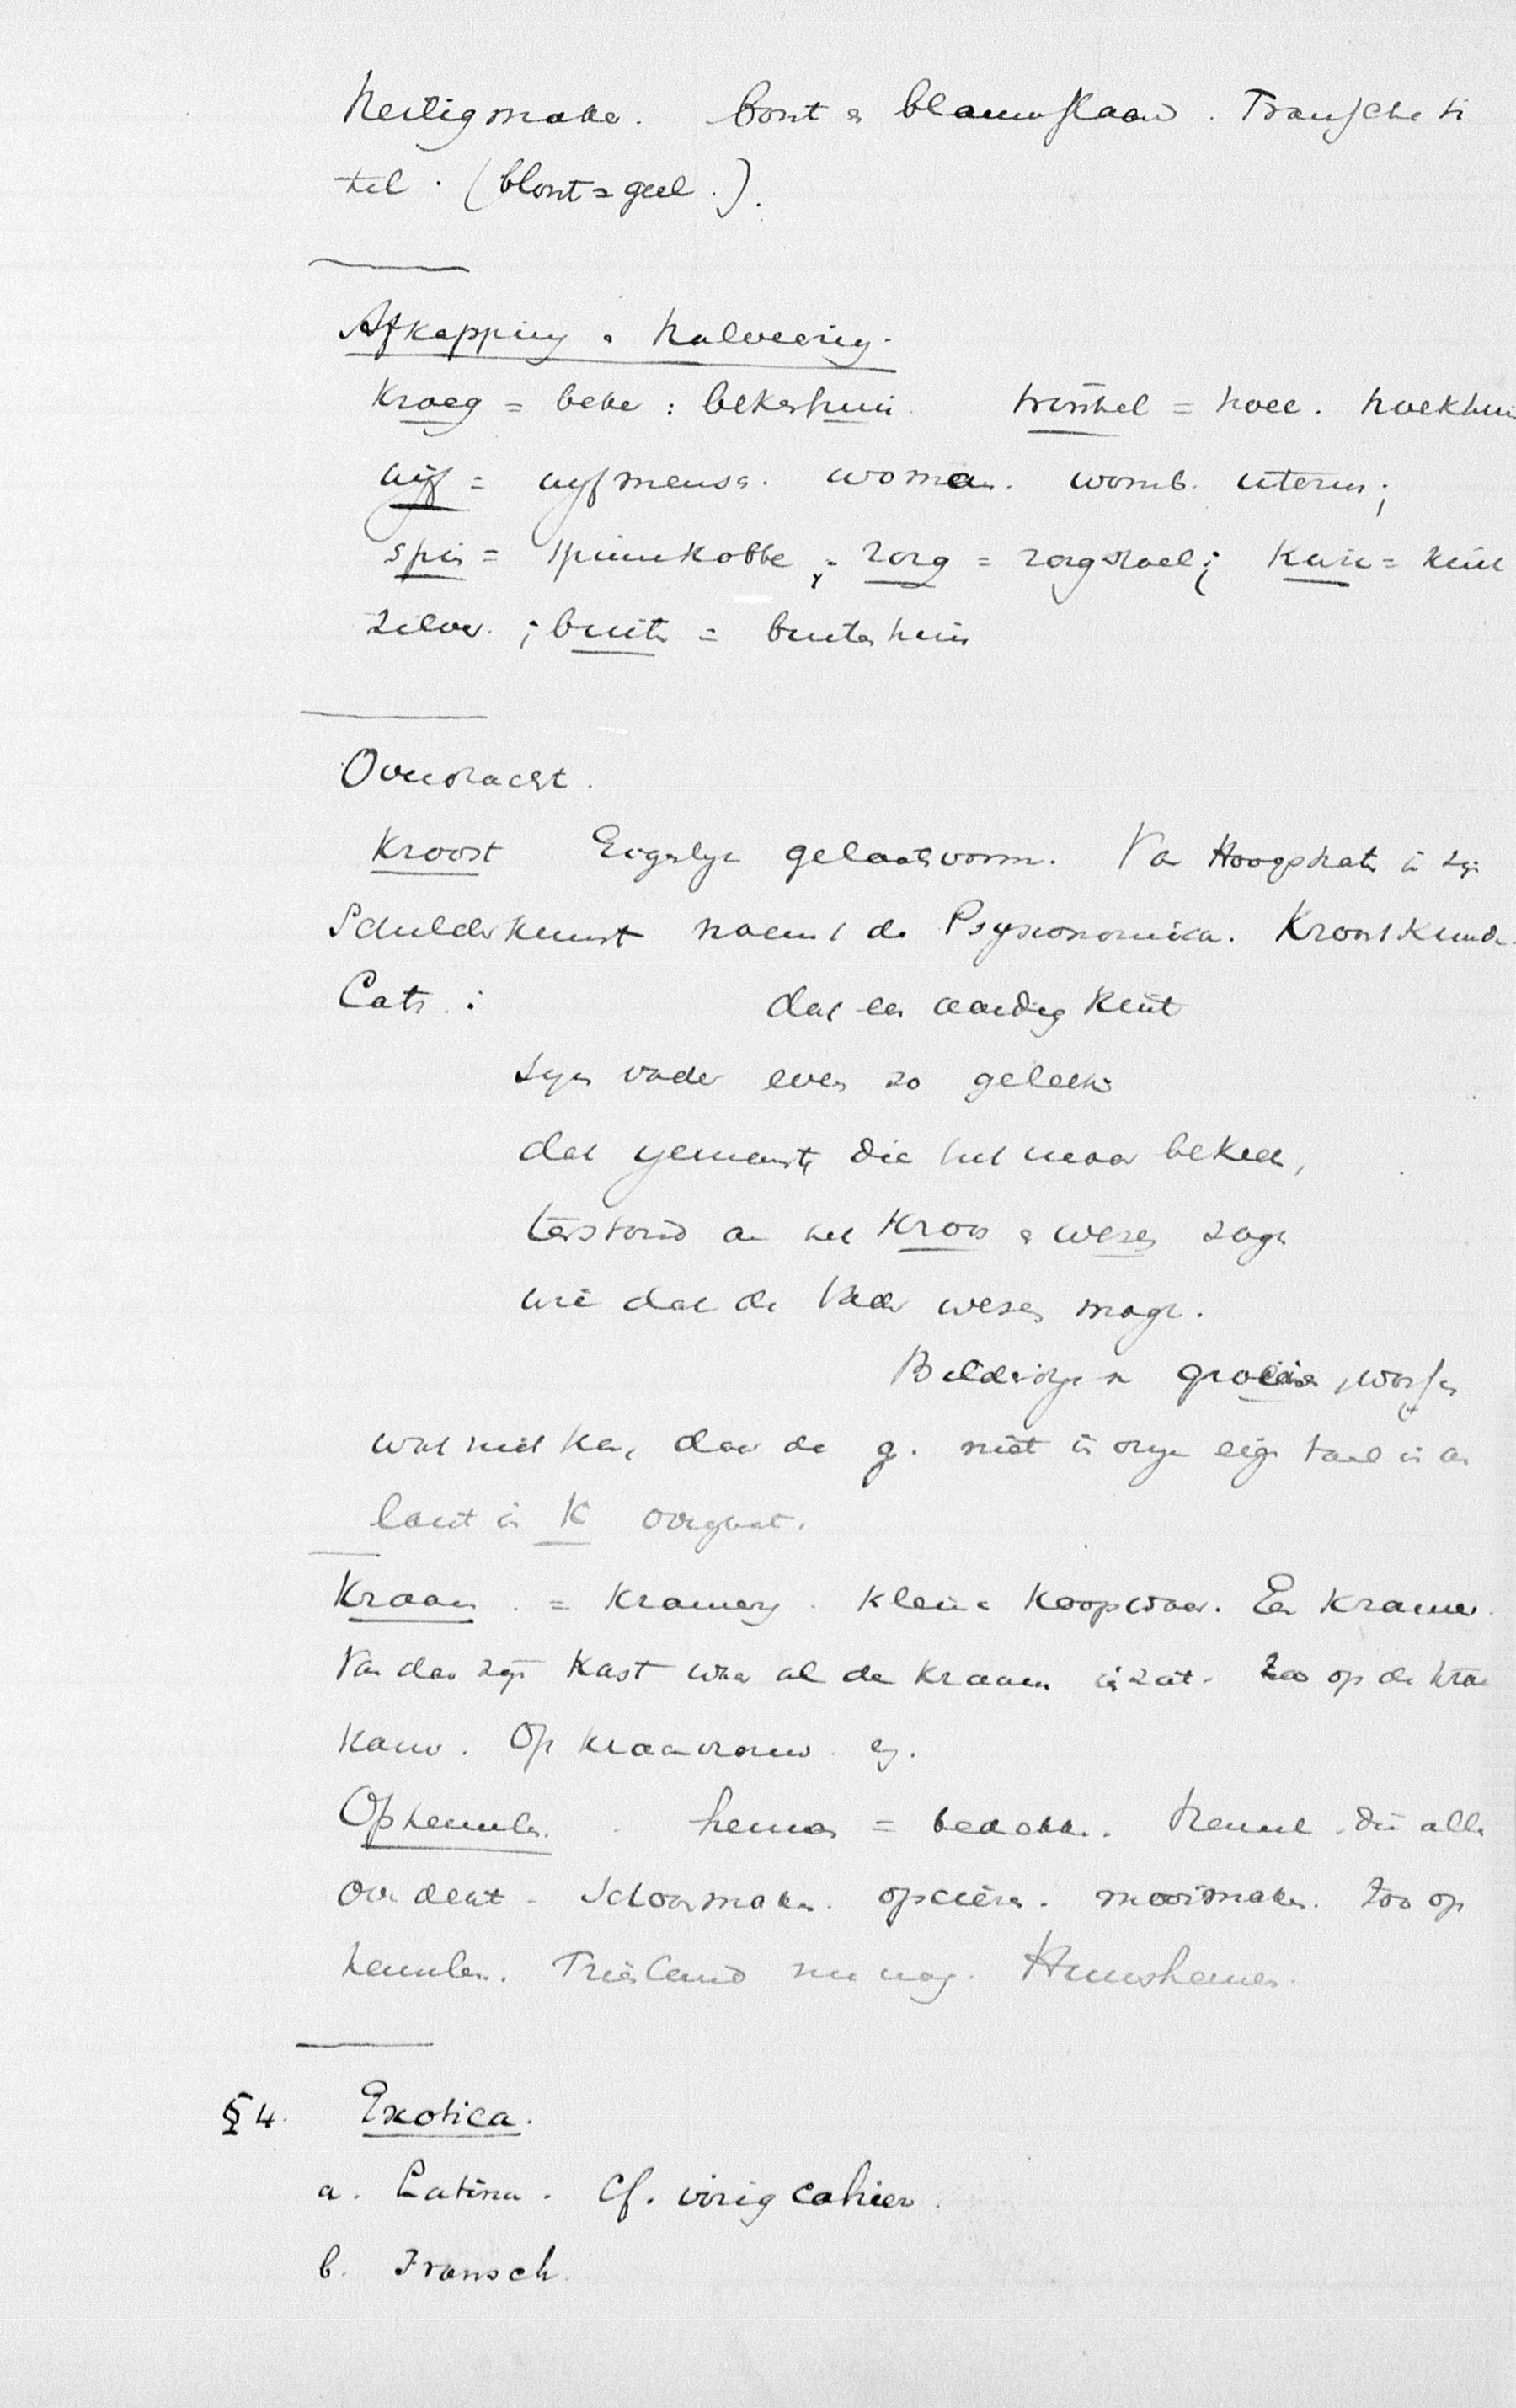 Heiligmake. bont & blauw slaan. Fransche ti
tel. (blont = geel.).
Afkapping & halveering.
Kroeg = beke: bekerhuis. winkel = hoec. hoekhuis
wijf = wyfmensch. woman. womb. uterus;
spin = spinnekobbe; zorg = zorgstoel; kwik = kwik
zilver; buit = buitenhuis
Overdracht.
Kroost Eigelyk gelaatsvorm. Van Hoogstrate in zijn
Schilderkunst noemt de Psysionomica. Kroostkunde.
Cats: dat een aardig kint
Syn vader even zo geleek
dat yemant, die het maar bekeek,
terstond aan het Kroos & wesen zagh
wie dat de Vader wesen magh.
Bilderdijk groeisel
wat niet kan, daar de g. niet in onze eigen taal in an
laut in K overgaat.
Kraam = Kramery. Kleine Koopwaar. Een Kramer.
Van daar zijn Kast waar al de Kraam in zat. Zoo op de kraam
Kamer. Op kraamvrouw
Ophemelen. hemen = bedekken. Hemel die alle
overdekt. Schoonmaken. opcieren. mooimaken. Zoo op
hemelen. Friesland nu nog. Huushemelen.
§ 4. Exotica.
a. Latina. Cf. vorig cahier.
b. Fransch.